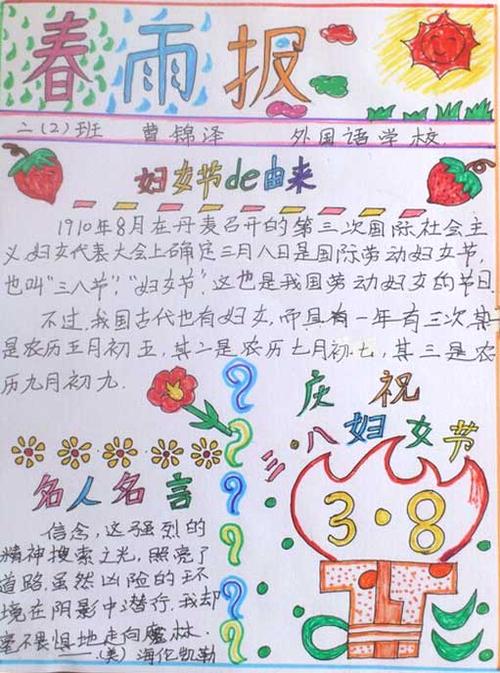 春雨报
二(2)班 曹锦泽 外国语学校
妇女节de由来
1910年8月在丹麦召开的第三次国际社会主
义妇女代表大会上确定三月八日是国际劳动妇女节,
也叫“三八节”,“妇女节”.这也是我国劳动妇女的节日.
不过,我国古代也有妇女,而且有一年有三次,其一
是农历五月初五,其二是农历七月初七,其三是农
历九月初九.
庆祝
三·八妇女节
3·8
名人名言
信念,这强烈的
精神搜索之光,照亮了
道路,虽然凶险的环
境在阴影中潜行,我却
毫不畏惧地走向魔林.
——(美)海伦凯勒